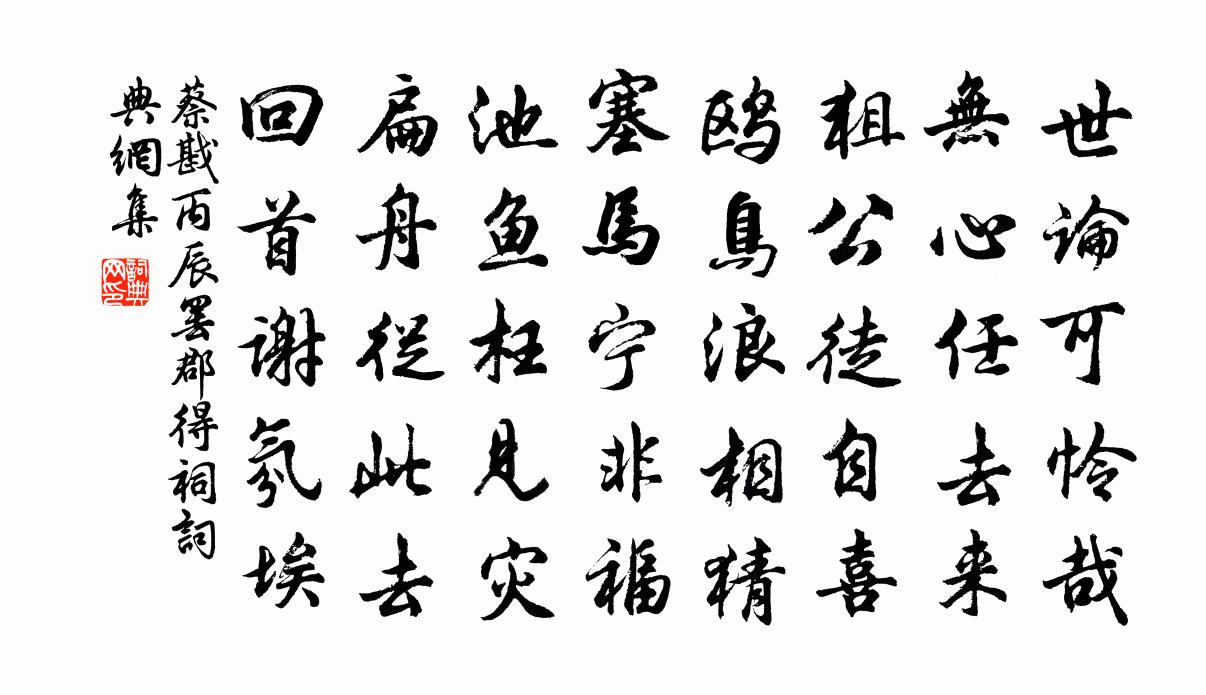 世論可怜哉
無心任去来
狙公徒自喜
鸥鳥浪相猜
塞馬宁非福
池鱼枉見灾
扁舟從此去
回首谢氛埃
蔡戡丙辰罢郡得祠詞
典網集
詞典
网印